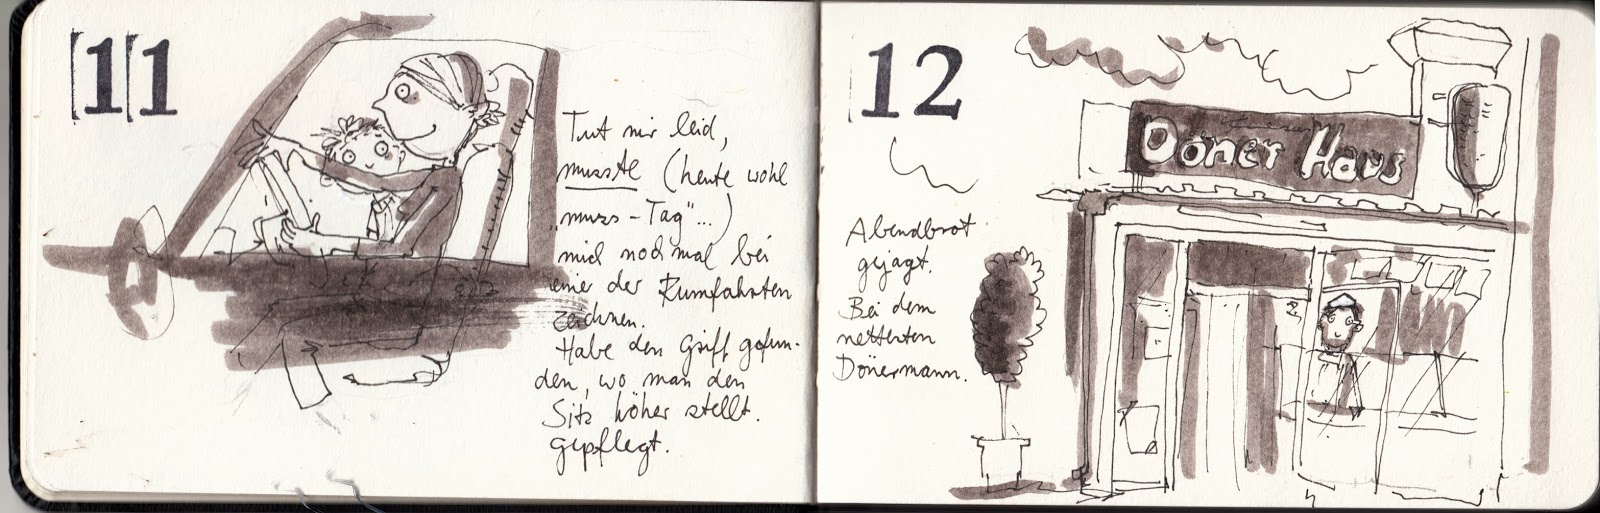 11
Tut mir leid,
musste (heute wohl
„muss-Tag"...)
mich nochmal bei
einer der Rumfahrten
zeichnen.
Habe den Griff gefun-
den, wo man den
Sitz höher stellt.
gepflegt.
12
Döner Haus
Abendbrot
gejagt.
Bei dem
nettesten
Dönermann.